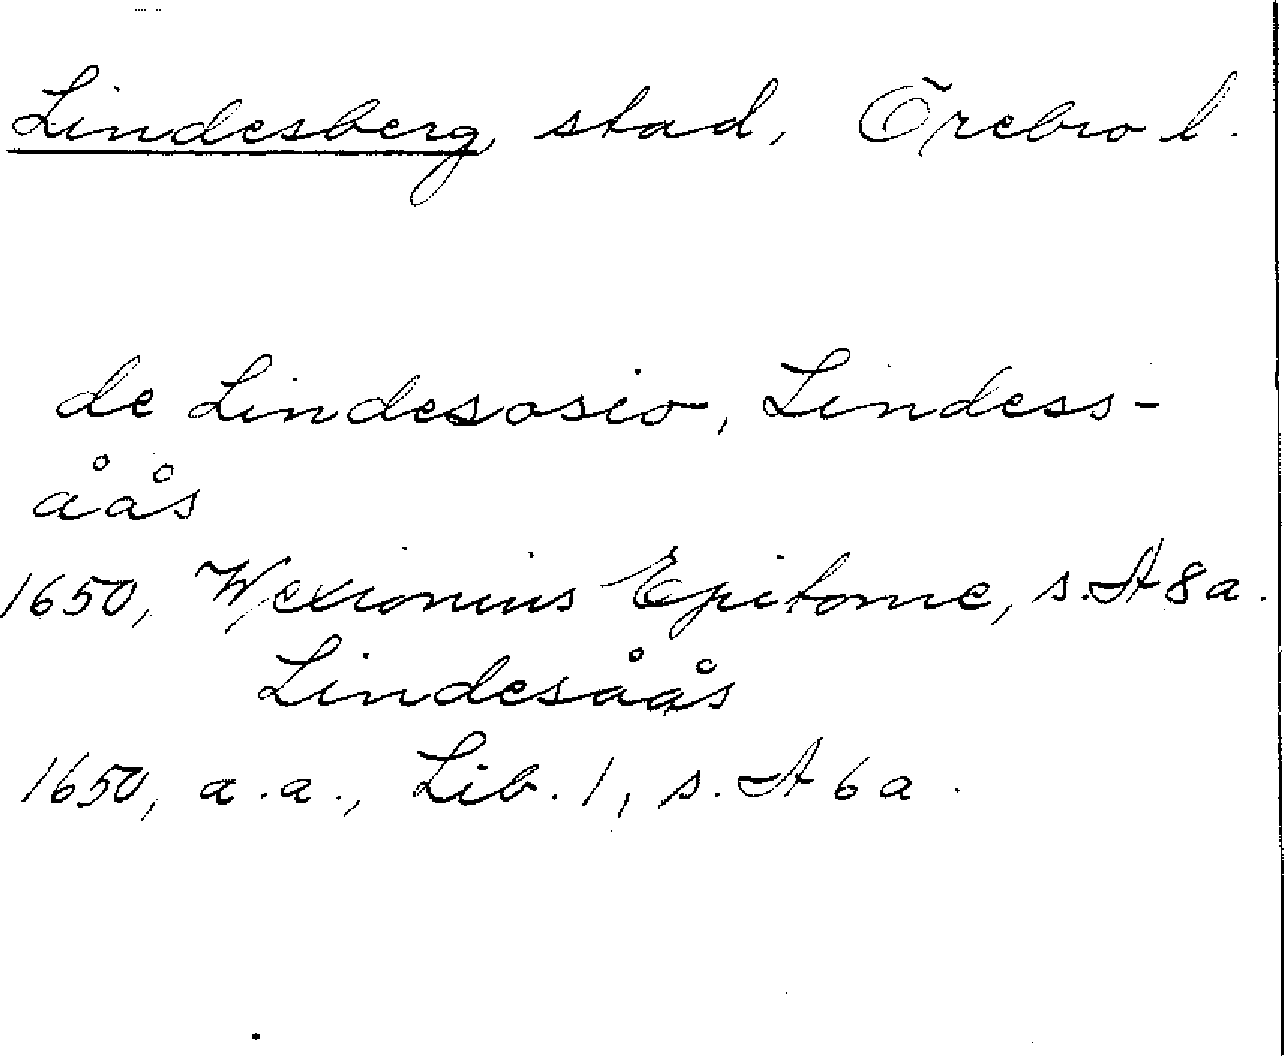 Lindesberg, stad, Örebro l.
de Lindesosio, Lindess-
åås
1650, Wexionius Epitome, s. A 8 a.
Lindesåås
1650, a.a., Lib. 1, s. A 6 a.